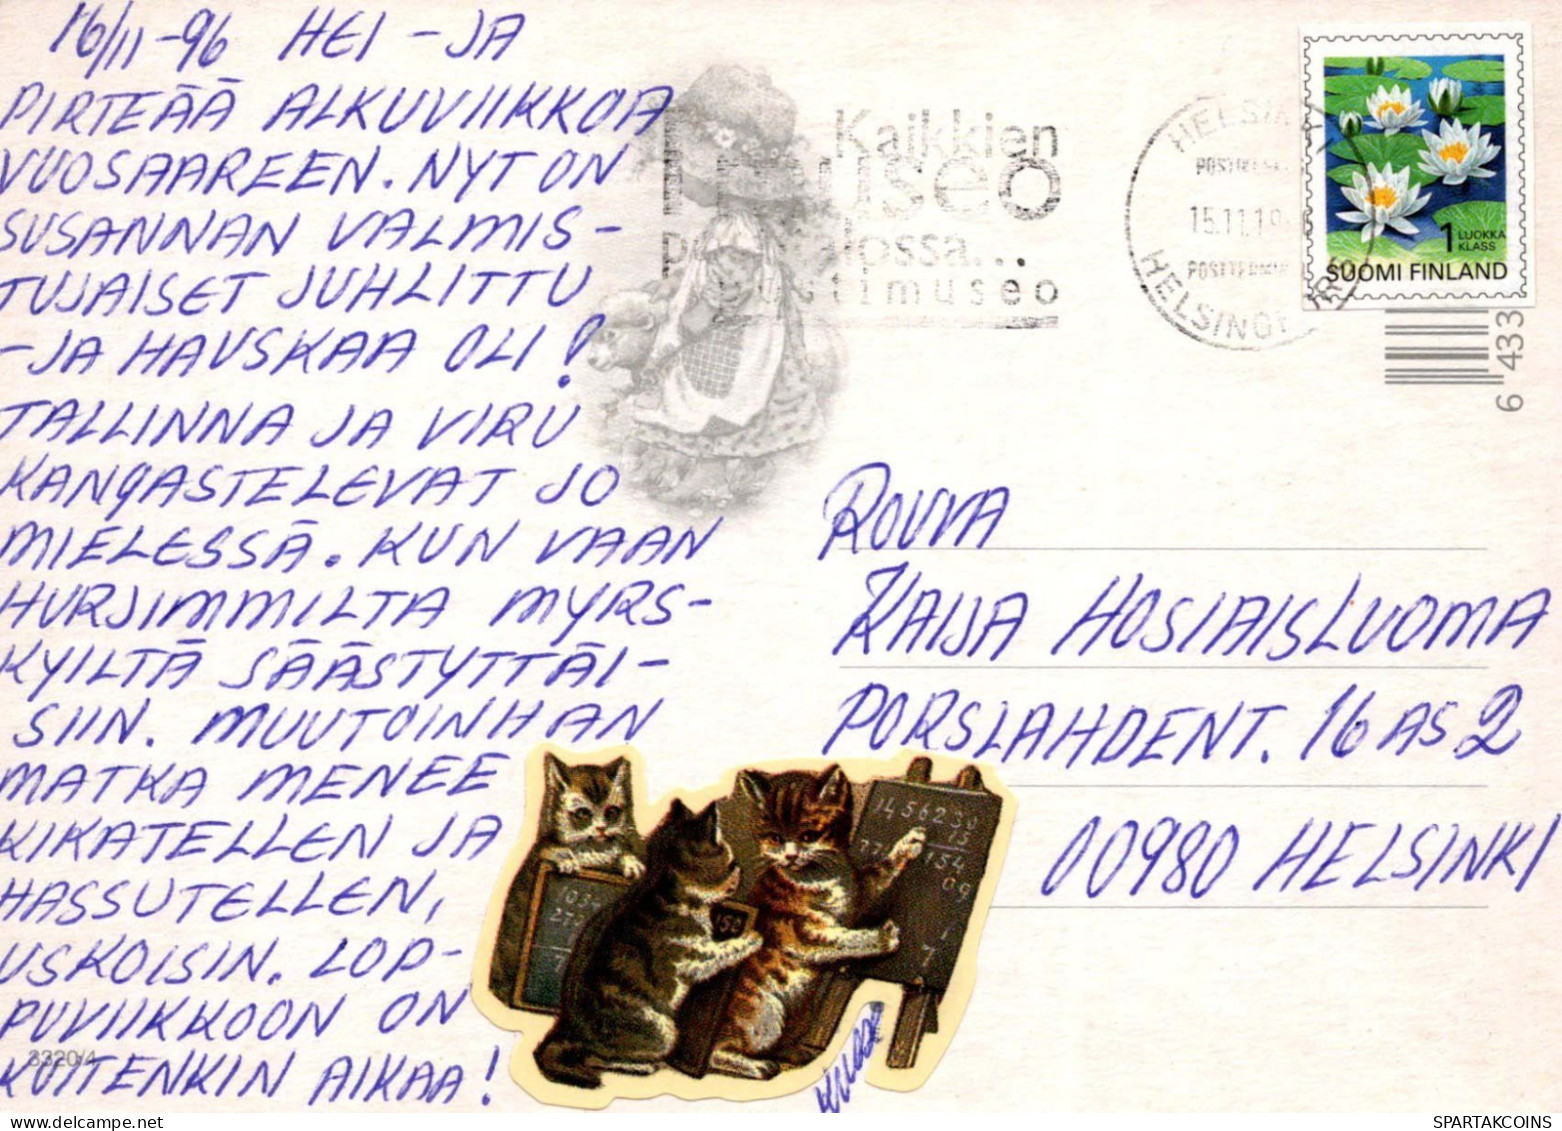 16/11-96 HEI -JA
PIRTEÄÄ ALKUVIIKKOA
VUOSAAREEN. NYT ON
SUSANNAN VALMIS-
TUJAISET JUHLITTU
-JA HAUSKAA OLI!
TALLINNA JA VIRU
KANGASTELEVAT JO
MIELESSÄ. KUN VAAN
HURJIMMILTA MYRS-
KYILTÄ SÄÄSTYTTÄI-
SIIN. MUUTOINHAN
MATKA MENEE
KIKATELLEN JA
HASSUTELLEN,
USKOISIN. LOP-
PUVIIKKOON ON
KUITENKIN AIKAA!
3320/4
Kaikkien
museo
possa...
Postimuseo
HELSINKI
15.11.19
HELSINGFORS
1 LUOKKA
KLASS
SUOMI FINLAND
6 433
ROUVA
KAIJA HOSIAISLUOMA
PORSLAHDENT. 16 AS 2
00980 HELSINKI
1456230
15
154
69
1
7
150
SPARTAKCOINS